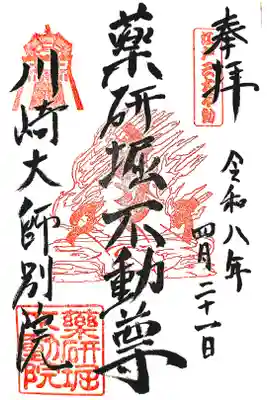 奉拝
令和八年
四月二十一日
薬研堀不動尊
川崎大師別院
薬研堀
不動院